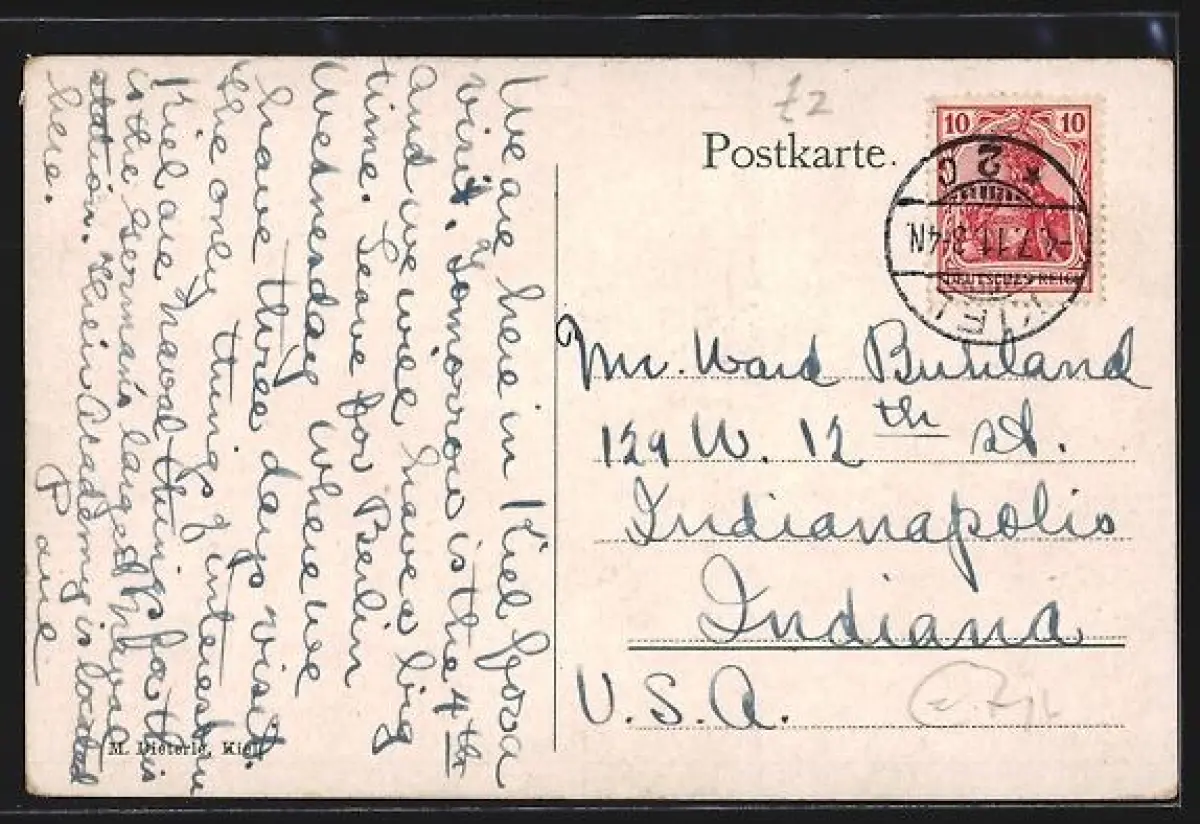 We are here in Kiel for a
visit. Tomorrow is the 4th
and we will have a big
time. Leave for Berlin
Wednesday where we
have three days visit.
the only things of interest in
Kiel are naval things for this
is the German's largest Naval
station. Their Academy is located
here.
Paul
M. Dieterle, Kiel
Postkarte.
10 10
DEUTSCHES REICH
KIEL
7.11.3-4N
* 2 C
Mr. Ward
129 W. 12th St.
Indianapolis
Indiana
U.S.A.